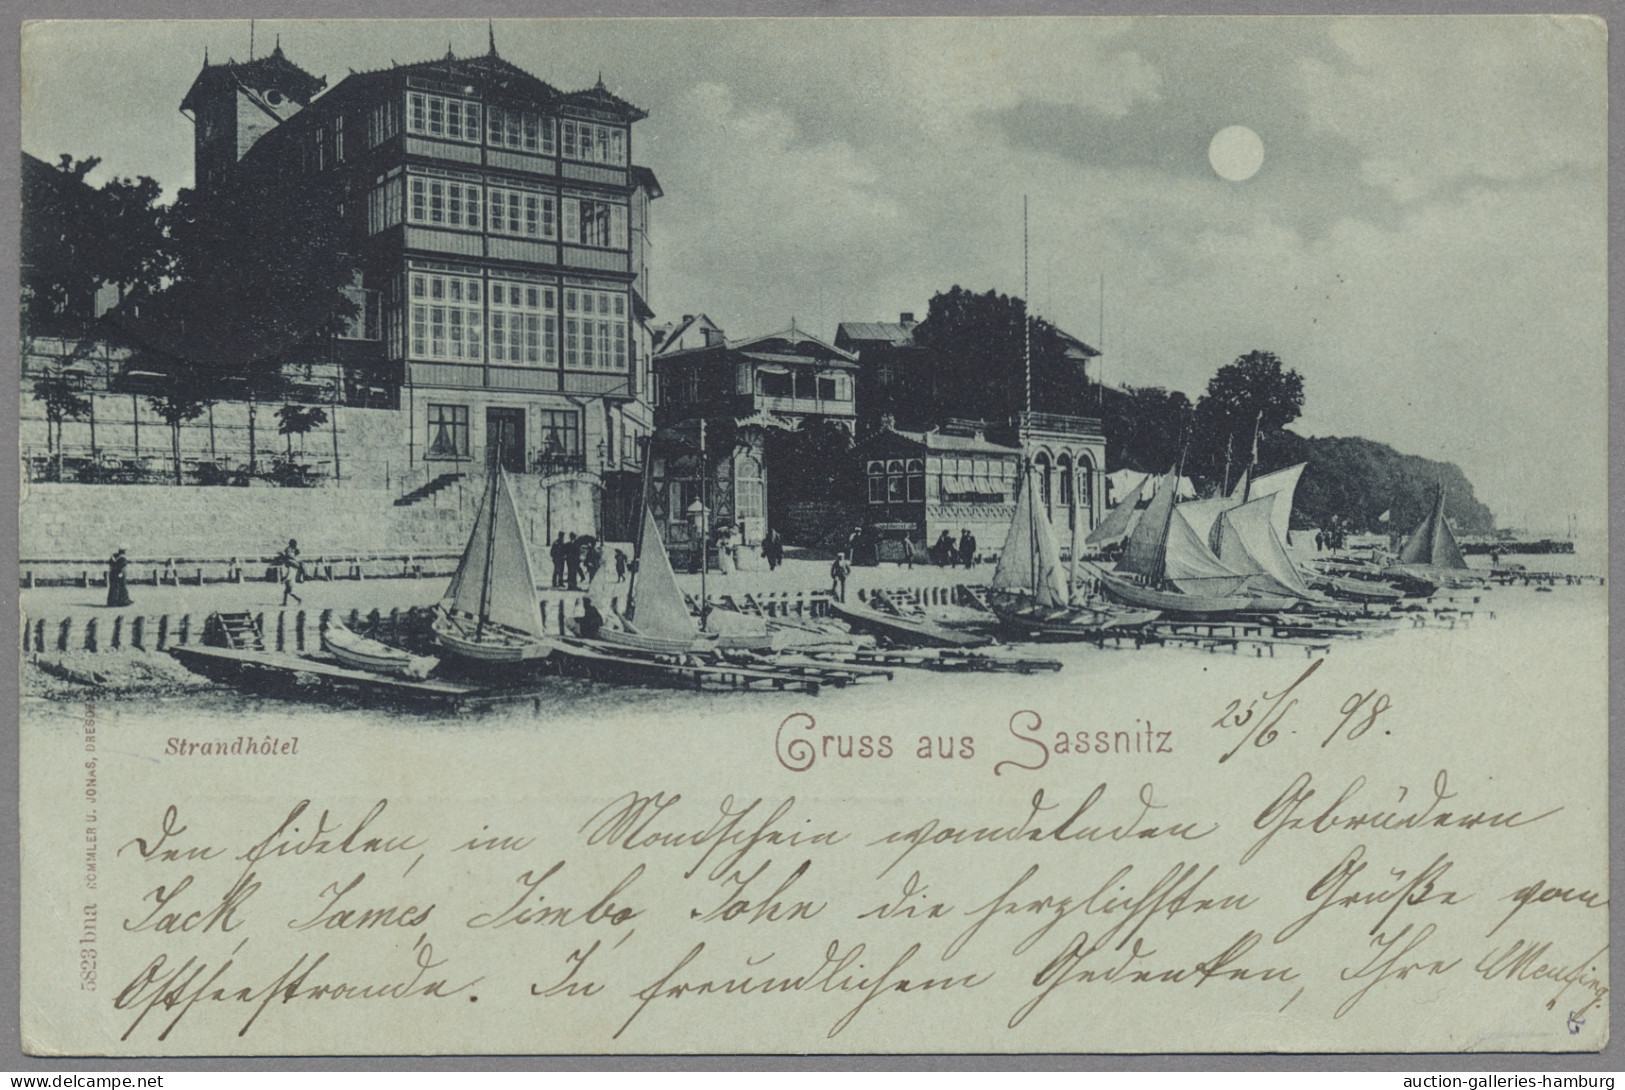 Strandhôtel
Gruss aus Sassnitz 25/6. 98.
Den fidelen, im Mondschein wandelnden Gebrüdern
Jack, James, Jimbo, John die herzlichsten Grüße vom
Ostseestrande. In freundlichem Gedenken, Ihre
5823 bna RÖMMLER U. JONAS, DRESDEN
auction-galleries-hamburg